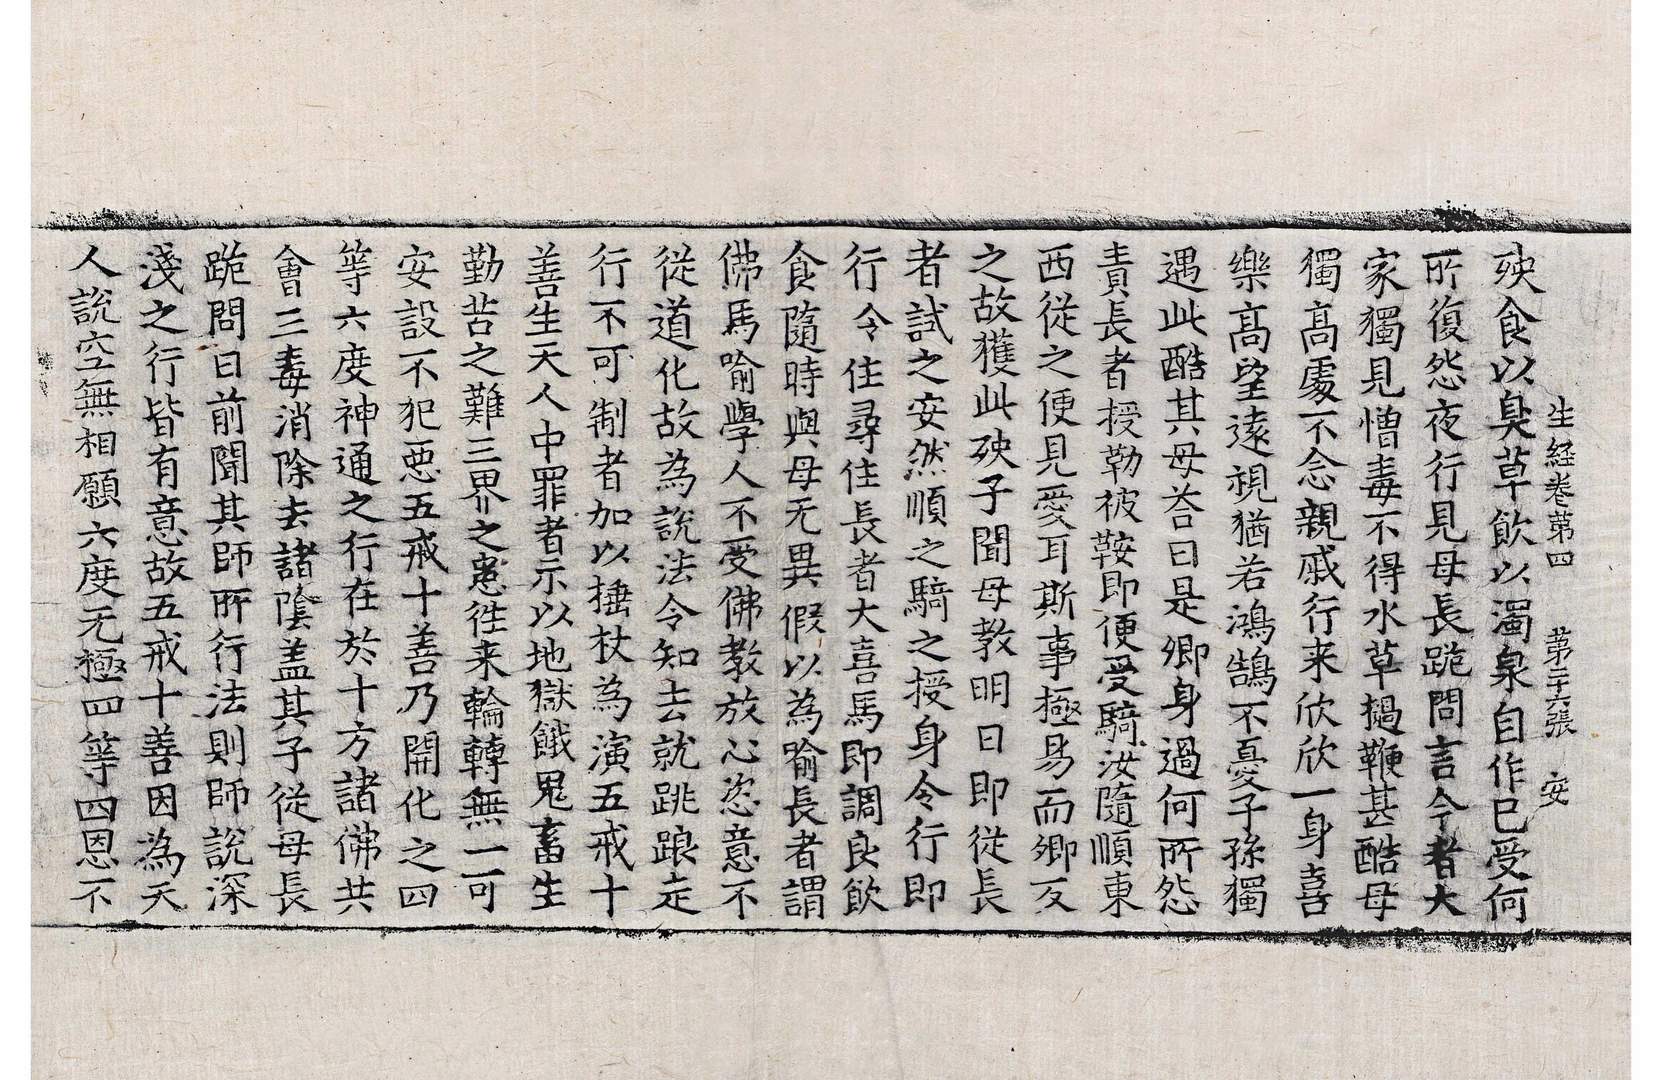 生経卷第四　第二十六張　安
殃食以臭草飲以濁泉自作已受何
所復怨夜行見母長跪問言今者大
家獨見憎毒不得水草撾鞭甚酷母
獨髙處不念親戚行来欣欣一身喜
樂髙望逺視猶若鴻鵠不憂子孫獨
遇此酷其母荅曰是卿身過何所怨
責長者授勒被鞍即便受騎汝隨順東
西從之便見愛耳斯事極易而卿反
之故獲此殃子聞母教明日即從長
者試之安然順之騎之授身令行即
行令住尋住長者大喜馬即調良飲
食隨時與母无異假以為喻長者謂
佛馬喻學人不受佛教放心恣意不
從道化故為説法令知去就跳踉走
行不可制者加以捶杖為演五戒十
善生天人中罪者示以地獄餓鬼畜生
勤苦之難三界之患徃来輪轉無一可
安設不犯惡五戒十善乃開化之四
等六度神通之行在於十方諸佛共
會三毒消除去諸陰盖其子從母長
跪問曰前聞其師所行法則師説深
淺之行皆有意故五戒十善因為天
人説空無相願六度无極四等四恩不